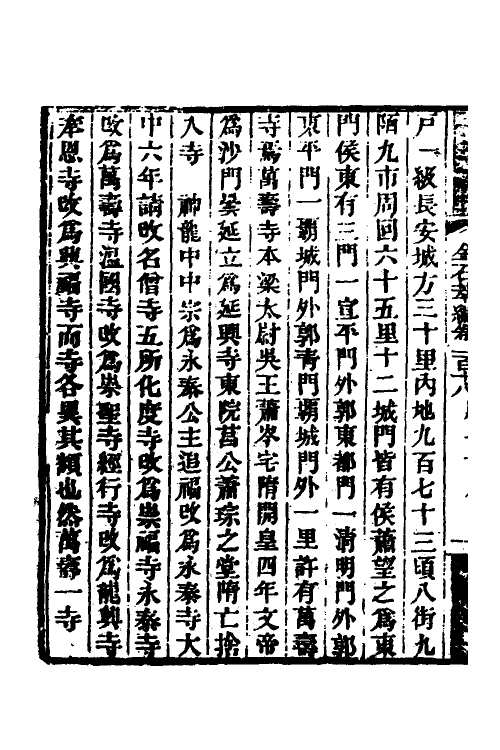 金石萃編卷一百十八
戸一級長安城方三十里內地九百七十三頃八街九
陌九市周回六十五里十二城門皆有侯蕭望之爲東
門侯東有三門一宣平門外郭東都門一清明門外郭
東平門一霸城門外郭靑門霸城門外一里許有萬壽
寺焉萬壽寺本梁太尉吳王蕭岑宅隋開皇四年文帝
爲沙門曇延立爲延興寺東院莒公蕭琮之堂隋亡捨
入寺 神龍中中宗爲永泰公主追福改爲永泰寺大
中六年請改名僧寺五所化度寺改爲崇福寺永泰寺
改爲萬壽寺溫國寺改爲崇聖寺經行寺改爲龍興寺
奉恩寺改爲興福寺而寺各異其額也然萬壽一寺